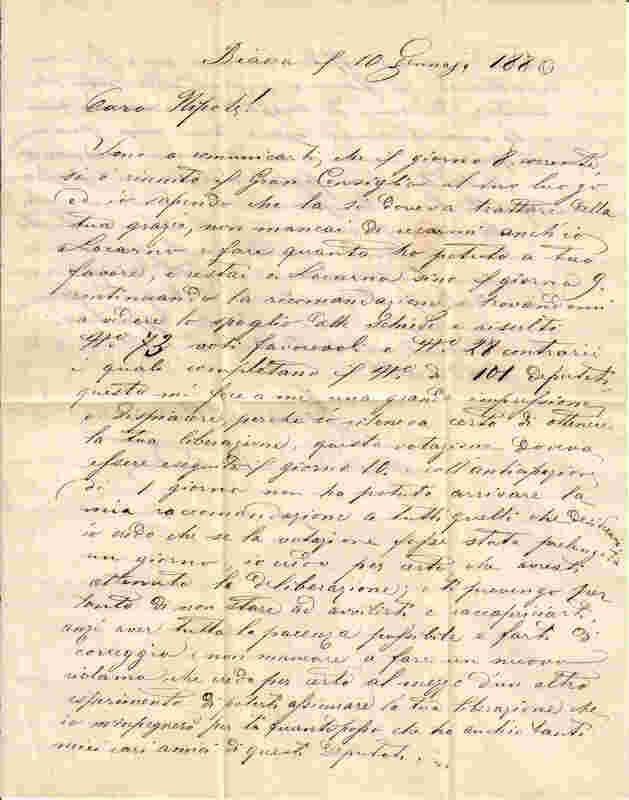 Biasca il 10 Gennajo 1880
Caro Nipote!
Sono a comunicarti, che il giorno 8 corrente,
si è riunito il Gran Consiglio al suo luogo
ed io sapendo che la si doveva trattare della
tua grazia, non mancai di recarmi anch'io
a Locarno e fare quanto ho potuto a tuo
favore, e restai a Locarno sino il giorno 9.
continuando la racomandazione, e trovandomi
a vedere lo spoglio delle Schede e risultò
N.º 73 voti favorevoli e N.º 28 contrarii
e quali completano il N.º di 101 Deputati,
questo mi fece a me una grande impressione
e dispiacere, perche io riteneva certo di ottenere
la tua liberazione, questa votazione doveva
essere eseguita il giorno 10. e coll'anticipazione
di 1 giorno non ho potuto arrivare la
mia raccomandazione a tutti quelli che desiderava
io credo che se la votazione fosse stata prolungata
un giorno io credo per certo che avresti
ottenuto la deliberazione; e ti prevengo per
tanto di non stare ad avvilirti e raccapriciarti,
anzi aver tutta la pacenza possibile e farti di
coreggio e non mancare a fare un nuovo
reclamo che credo per certo al mezzo d'un altro
esperimento di poterti assicurare la tua liberazione che
io m'impegnerò per te quanto posso che ho anch'io tanti
miei cari amici di questi Deputati.